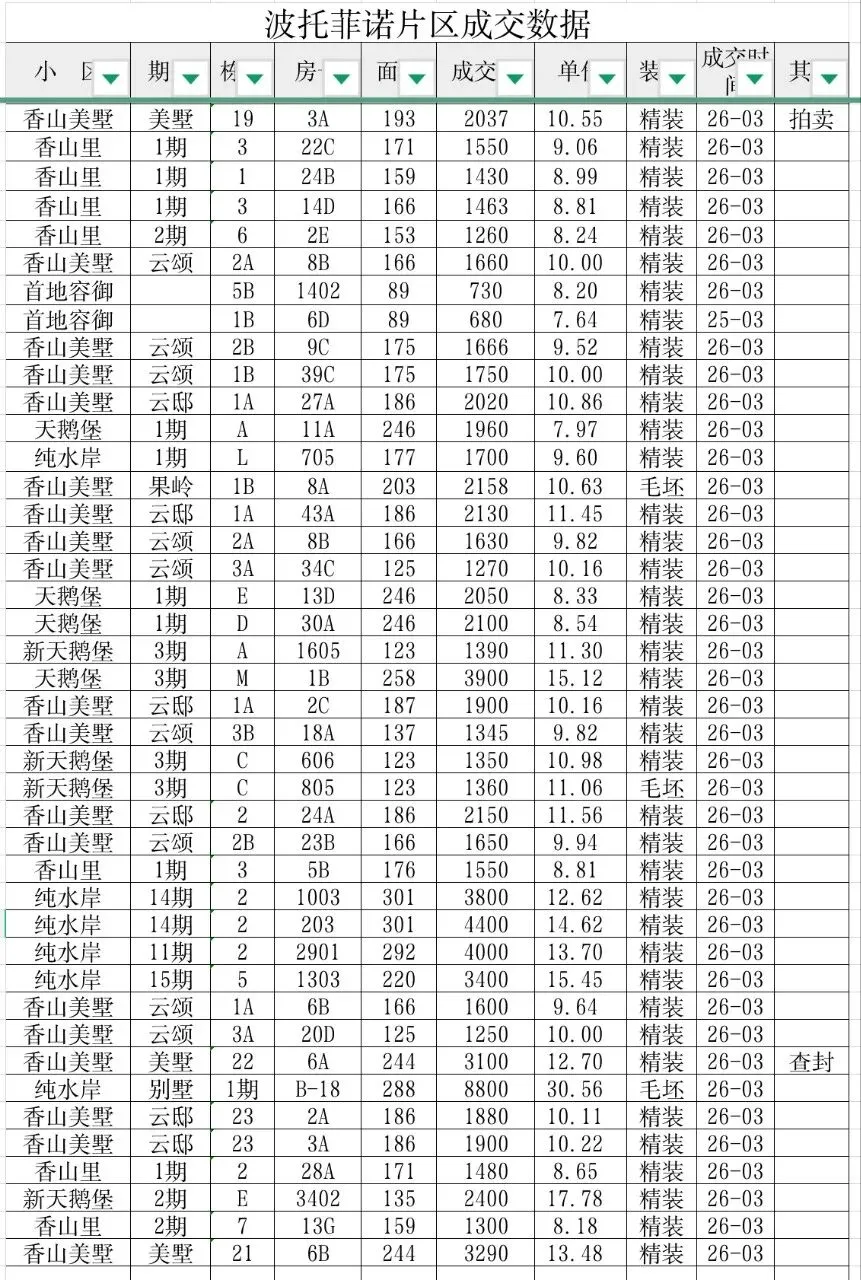 波托菲诺片区成交数据
小 区 期 栋 房 面 成交 单价 装 成交时间 其
香山美墅 美墅 19 3A 193 2037 10.55 精装 26-03 拍卖
香山里 1期 3 22C 171 1550 9.06 精装 26-03
香山里 1期 1 24B 159 1430 8.99 精装 26-03
香山里 1期 3 14D 166 1463 8.81 精装 26-03
香山里 2期 6 2E 153 1260 8.24 精装 26-03
香山美墅 云颂 2A 8B 166 1660 10.00 精装 26-03
首地容御 5B 1402 89 730 8.20 精装 26-03
首地容御 1B 6D 89 680 7.64 精装 25-03
香山美墅 云颂 2B 9C 175 1666 9.52 精装 26-03
香山美墅 云颂 1B 39C 175 1750 10.00 精装 26-03
香山美墅 云邸 1A 27A 186 2020 10.86 精装 26-03
天鹅堡 1期 A 11A 246 1960 7.97 精装 26-03
纯水岸 1期 L 705 177 1700 9.60 精装 26-03
香山美墅 果岭 1B 8A 203 2158 10.63 毛坯 26-03
香山美墅 云邸 1A 43A 186 2130 11.45 精装 26-03
香山美墅 云颂 2A 8B 166 1630 9.82 精装 26-03
香山美墅 云颂 3A 34C 125 1270 10.16 精装 26-03
天鹅堡 1期 E 13D 246 2050 8.33 精装 26-03
天鹅堡 1期 D 30A 246 2100 8.54 精装 26-03
新天鹅堡 3期 A 1605 123 1390 11.30 精装 26-03
天鹅堡 3期 M 1B 258 3900 15.12 精装 26-03
香山美墅 云邸 1A 2C 187 1900 10.16 精装 26-03
香山美墅 云颂 3B 18A 137 1345 9.82 精装 26-03
新天鹅堡 3期 C 606 123 1350 10.98 精装 26-03
新天鹅堡 3期 C 805 123 1360 11.06 毛坯 26-03
香山美墅 云邸 2 24A 186 2150 11.56 精装 26-03
香山美墅 云颂 2B 23B 166 1650 9.94 精装 26-03
香山里 1期 3 5B 176 1550 8.81 精装 26-03
纯水岸 14期 2 1003 301 3800 12.62 精装 26-03
纯水岸 14期 2 203 301 4400 14.62 精装 26-03
纯水岸 11期 2 2901 292 4000 13.70 精装 26-03
纯水岸 15期 5 1303 220 3400 15.45 精装 26-03
香山美墅 云颂 1A 6B 166 1600 9.64 精装 26-03
香山美墅 云颂 3A 20D 125 1250 10.00 精装 26-03
香山美墅 美墅 22 6A 244 3100 12.70 精装 26-03 查封
纯水岸 别墅 1期 B-18 288 8800 30.56 毛坯 26-03
香山美墅 云邸 23 2A 186 1880 10.11 精装 26-03
香山美墅 云邸 23 3A 186 1900 10.22 精装 26-03
香山里 1期 2 28A 171 1480 8.65 精装 26-03
新天鹅堡 2期 E 3402 135 2400 17.78 精装 26-03
香山里 2期 7 13G 159 1300 8.18 精装 26-03
香山美墅 美墅 21 6B 244 3290 13.48 精装 26-03